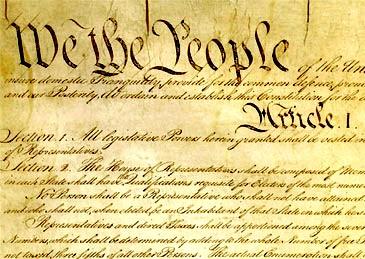 We the People of the Uni
insure domestic Tranquility, provide for the common defence, prom
and our Posterity, do ordain and establish this Constitution for the
Article I.
Section 1. All legislative Powers herein granted shall be vested in
of Representatives.
Section 2. The House of Representatives shall be composed of Mem
in each State shall have the Qualifications requisite for Electors of the most nume
No Person shall be a Representative who shall not have attained
and who shall not, when elected, be an Inhabitant of that State in which he
Representatives and direct Taxes shall be apportioned among the seve
Numbers, which shall be determined by adding to the whole Number of free
not taxed, three fifths of all other Persons. The actual Enumeration shall